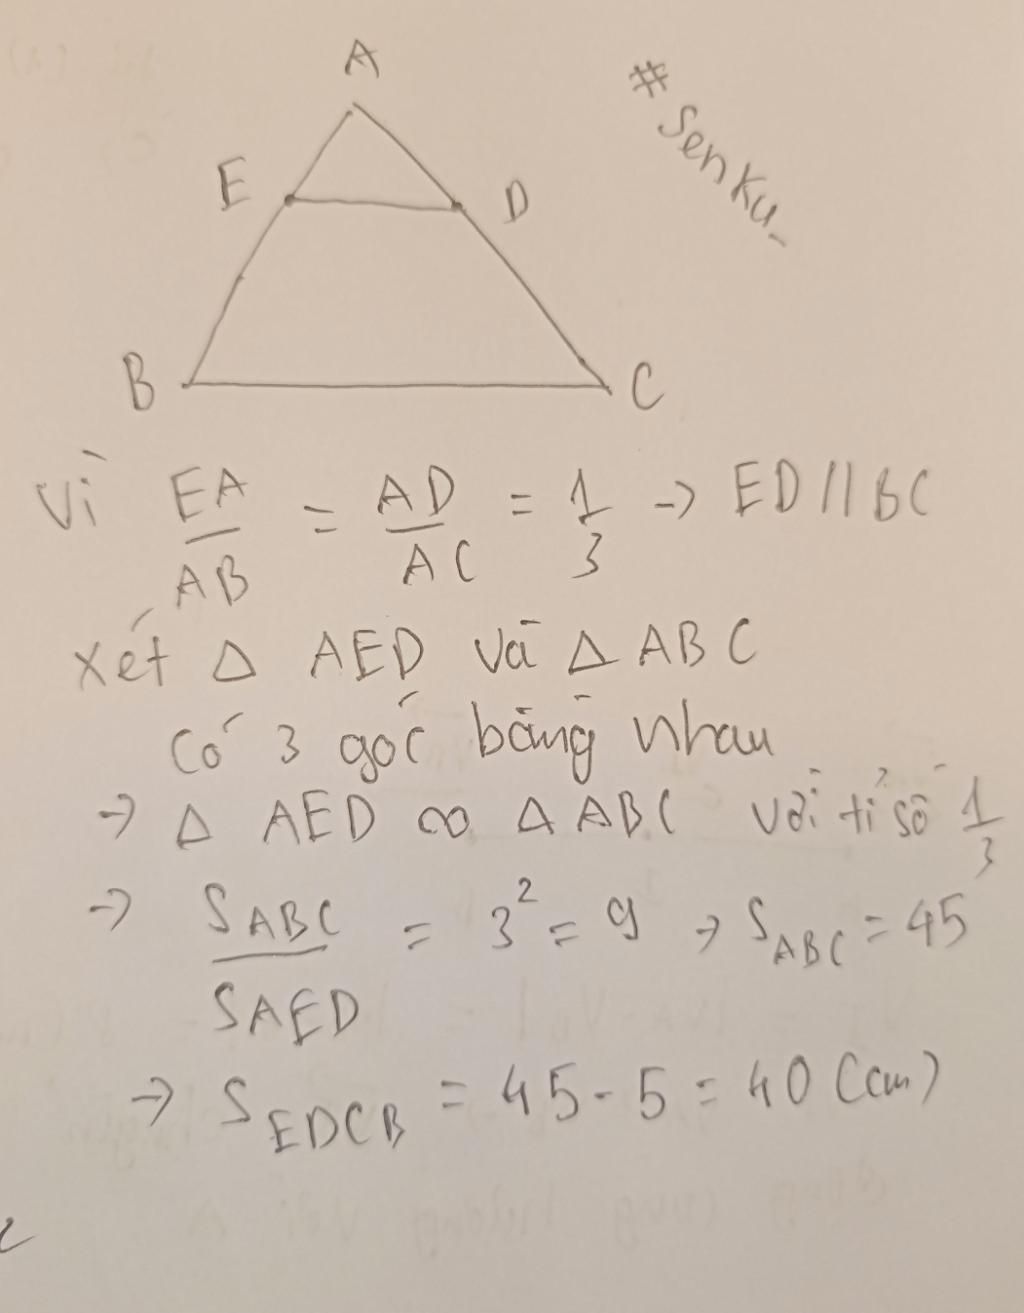 A
# Senku_
E
D
B
C
Vì EA/AB = AD/AC = 1/3 → ED // BC
Xét Δ AED và Δ ABC
Có 3 góc bằng nhau
→ Δ AED ∞ Δ ABC với tỉ số 1/3
→ S ABC / S AED = 3² = 9 → S ABC = 45
→ S EDCB = 45 - 5 = 40 (cm)